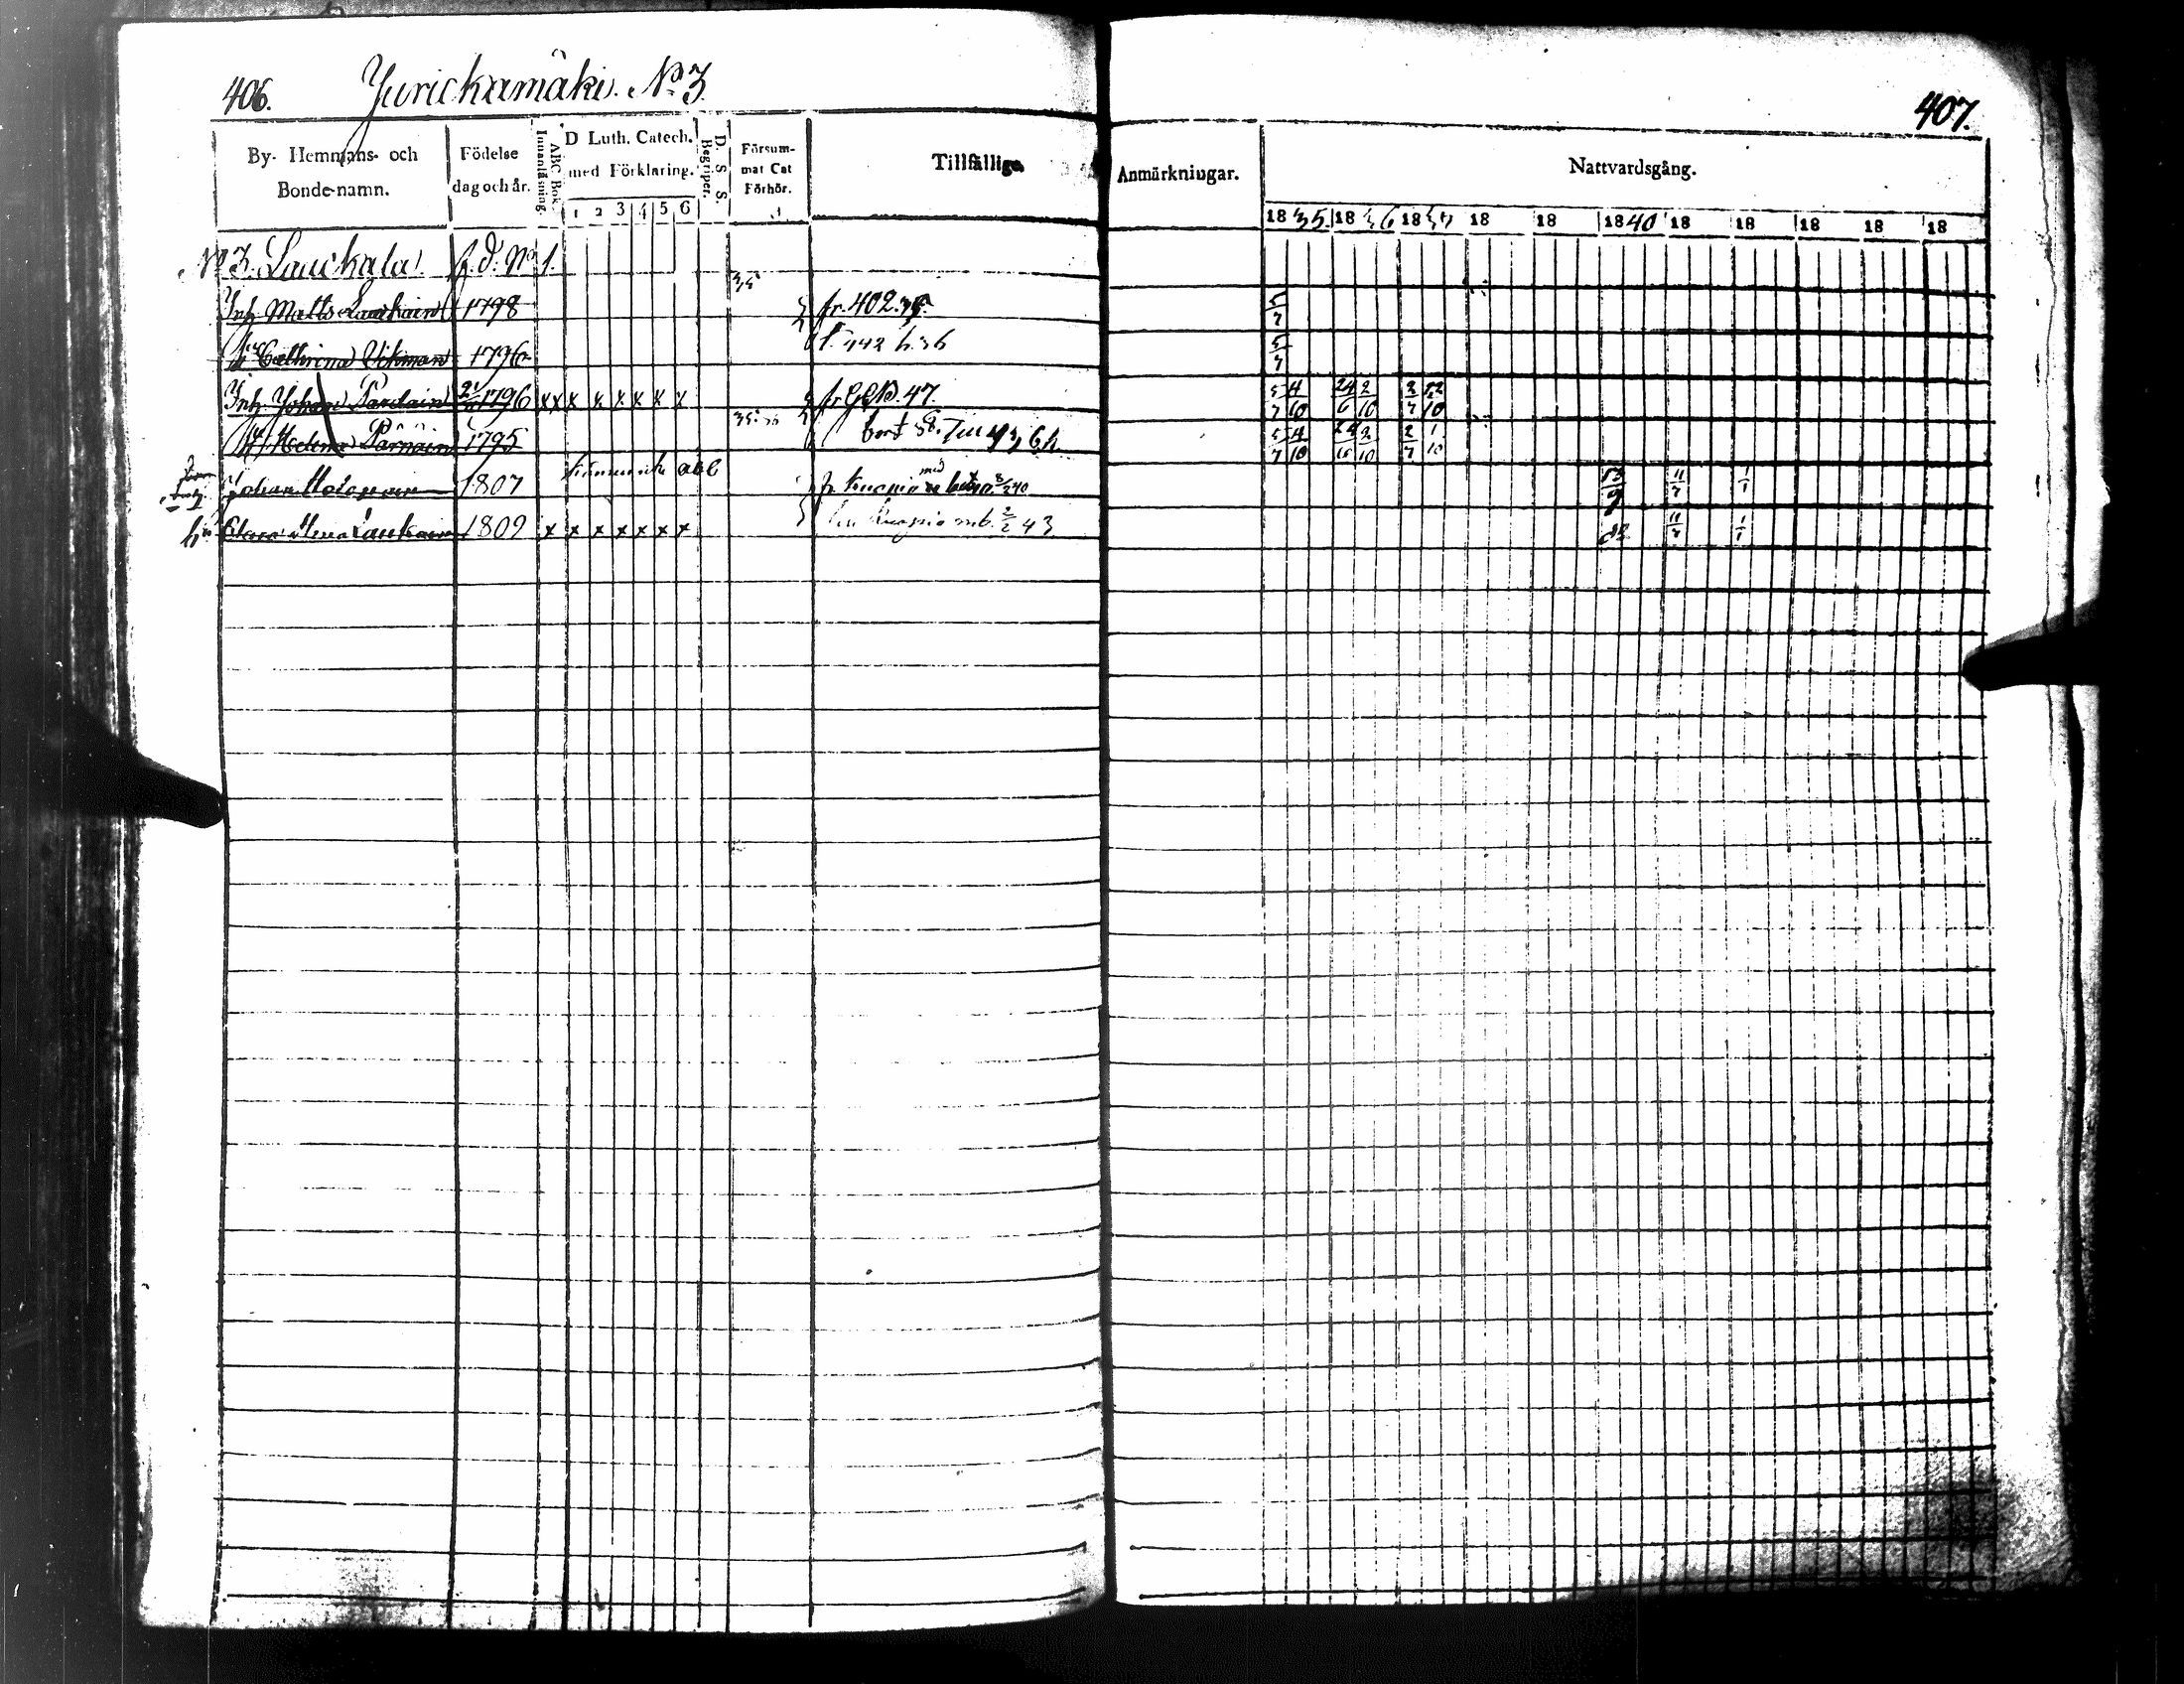 406. Jurickamäki. No 3.
407.
By- Hemmans- och Bonde-namn.
Födelse dag och år.
ABC Bok. Innanläsning.
D Luth. Catech. med Förklaring.
1 2 3 4 5 6
D. S. S. Begriper.
Försummat Cat Förhör.
Tillfällige
Anmärkningar.
Nattvardsgång.
1835. 1836 1837 18 18 1840 18 18 18 18 18
No 3. Lauckala f. d. No 1.
35
Inh. Matts Laukain 1798 fr. 402. 35. 5/7
hu Cathrina Vikman 1796 442 h. 36 5/7
Inh. Johan Pardain 1796 x x x x x x x x fr. 47. 5/7 4/10 24/6 2/10 2/7 22/10
hu Helena Pärnäin 1795 35. 36 bort 38. 5/7 4/10 24/6 2/10 2/7 1/10
Johan 1807 känner icke abc fr. Kuopio med 40 11/7 1/1
hu Clara Laukain 1809 x x x x x x x Kuopio 43 11/7 1/1